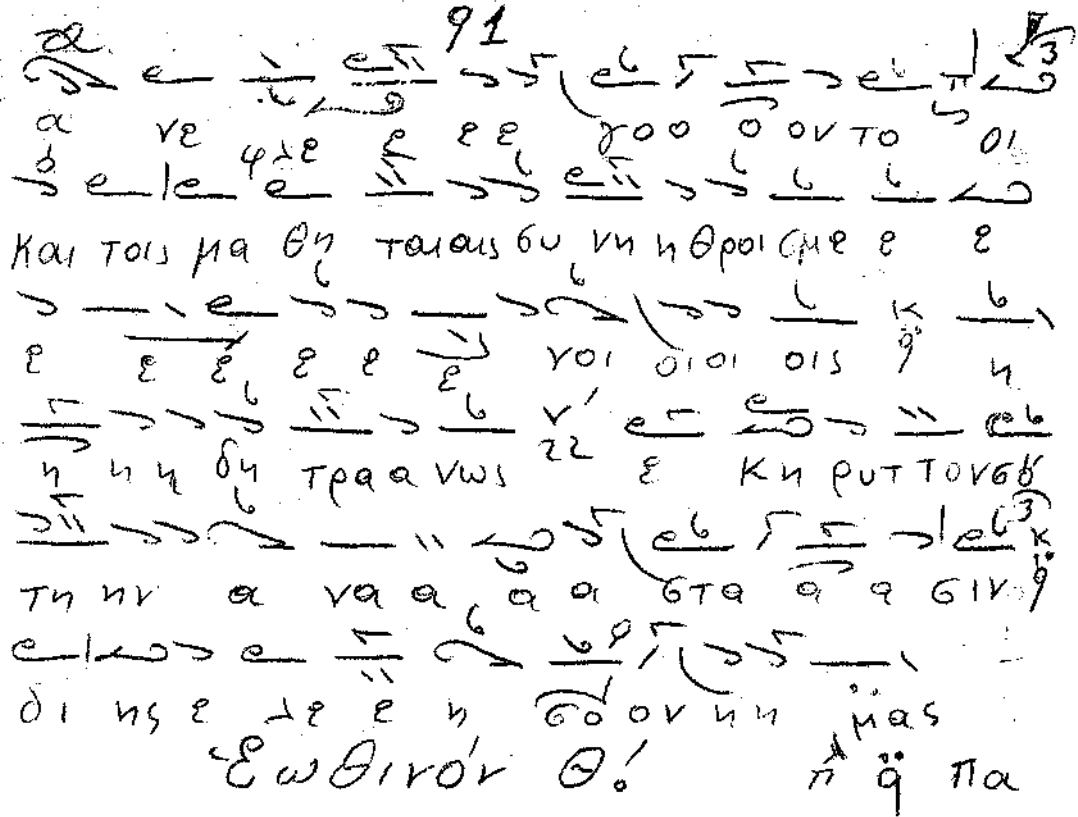 91
α νε φλε ε ε ε γο ο ο ον το οι
και τοις μα θη ταιαις συ νη η θροι σμε ε ε
ε ε ε ε ε ε νοι οι οι οις η
η η η δη τρα α νως ε κη ρυτ τον σου
τη ην α να α α α στα α α σιν
δι ης ε λε ε η σο ον η η μας
Ἑωθινόν Θ! π̈ q πα